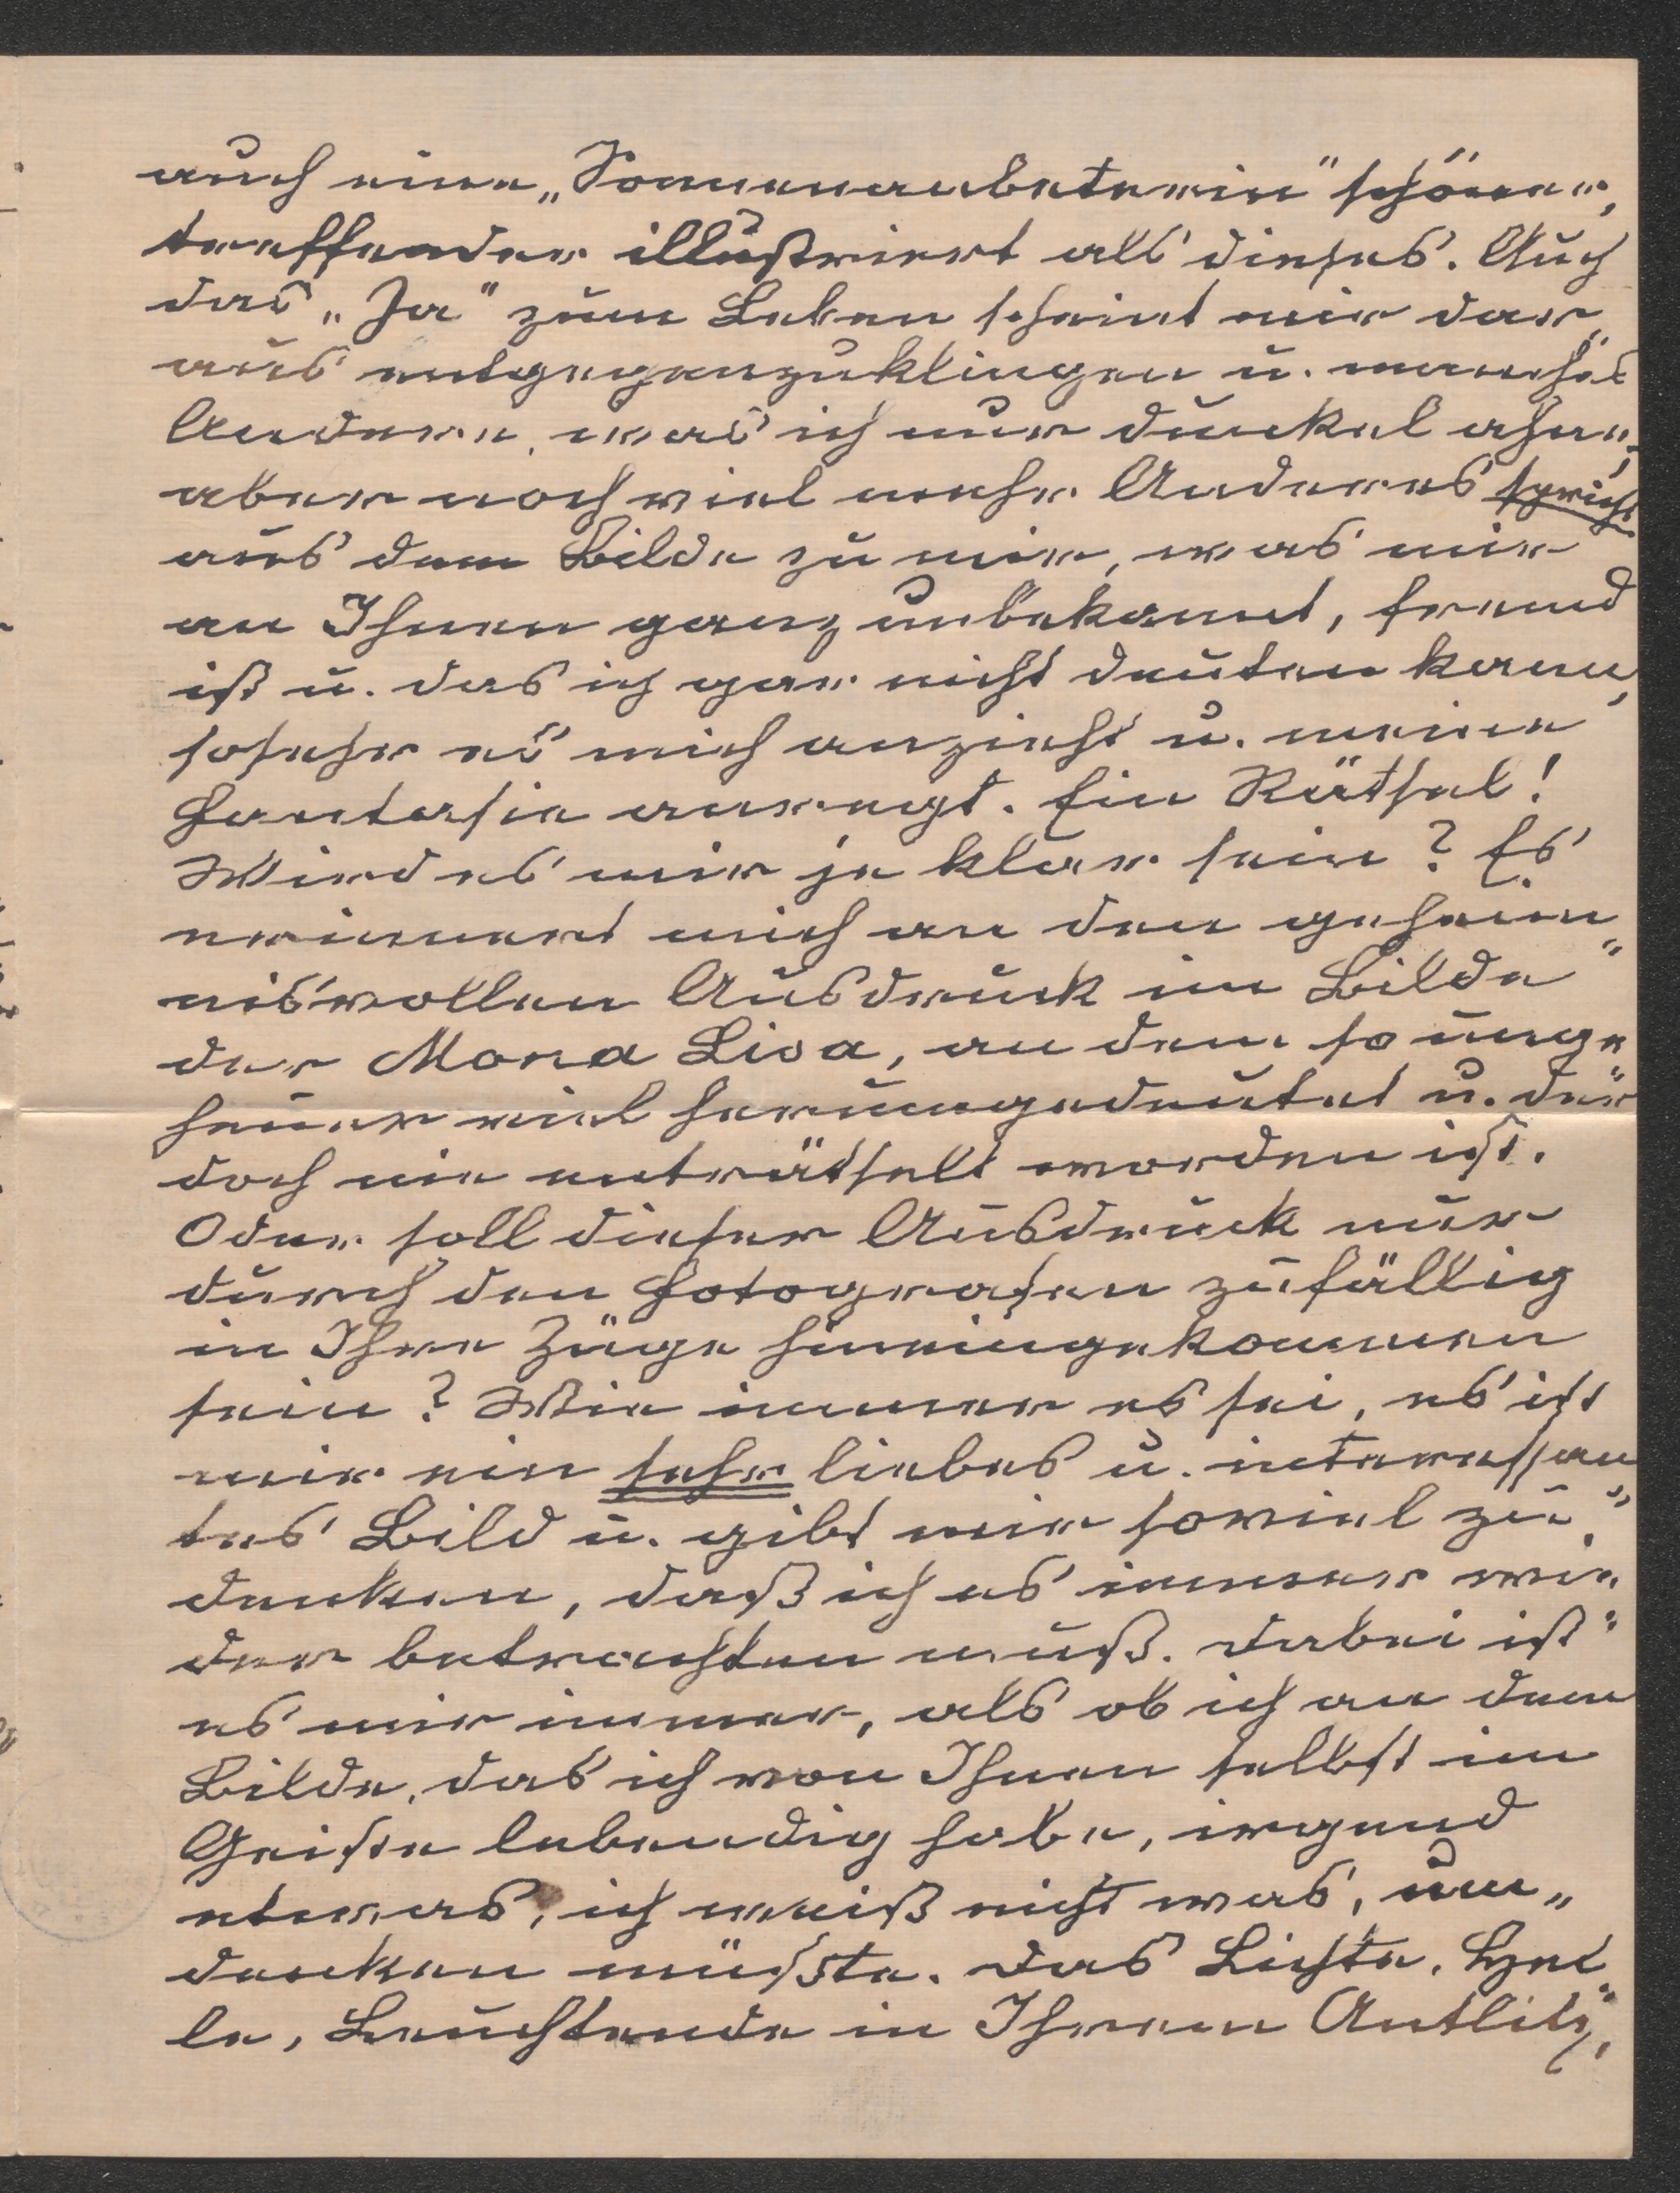 auch eine „Sonnenanbeterin" schöner,
treffender illustriert als dieses. Auch
das „Ja" zum Leben scheint mir dar„
aus entgegenzuklingen u. manches
Andere, was ich nur dunkel ahne,
aber noch viel mehr Anderes spricht
aus dem Bilde zu mir, was mir
an Ihnen ganz unbekannt, fremd
ist u. das ich gar nicht deuten kann,
sosehr es mich anzieht u. meine
Fantasie anregt. Ein Rätsel!
Wird es mir je klar sein? Es
erinnert mich an den geheim„
nisvollen Ausdruck im Bilde
der Mona Lisa, an dem so unge„
heuer viel herumgedeutet u. der
doch nie enträtselt worden ist.
Oder soll dieser Ausdruck nur
durch den Fotografen zufällig
in Ihre Züge hineingekommen
sein? Wie immer es sei, es ist
mir ein sehr liebes u. interessan„
tes Bild u. gibt mir soviel zu
denken, daß ich es immer wie„
der betrachten muß. Dabei ist
es mir immer, als ob ich an dem
Bilde, das ich von Ihnen selbst im
Geiste lebendig habe, irgend
etwas, ich weiß nicht was, um„
denken müsste. Das Lichte, Hel„
le, Leuchtende in Ihrem Antlitz,